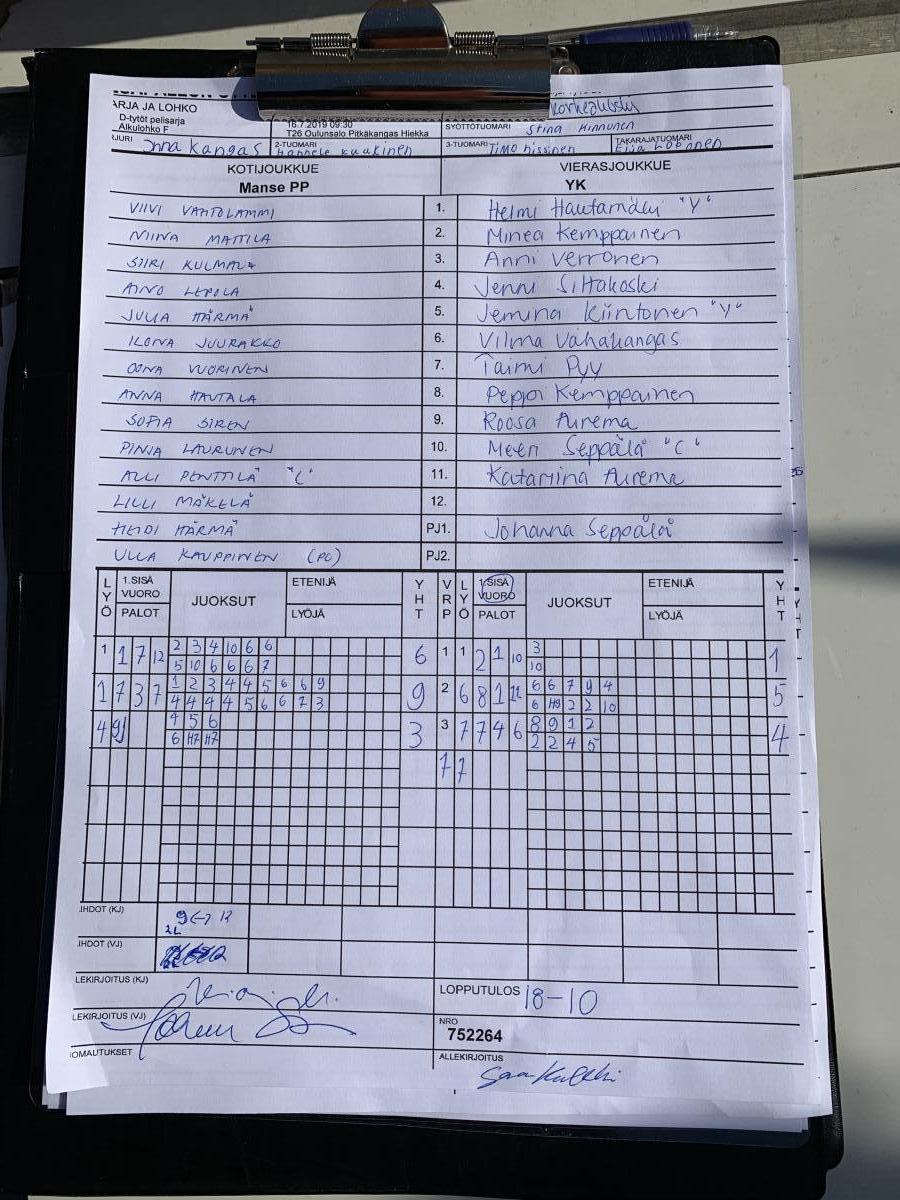 ARJA JA LOHKO
D-tytöt pelisarja
Alkulohko F
16.7.2019 09:30
T26 Oulunsalo Pitkäkangas Hiekka
SYÖTTÖTUOMARI Stina Hinnunen
Jonna Kangas 2-TUOMARI 3-TUOMARI TAKARAJATUOMARI
KOTIJOUKKUE VIERASJOUKKUE
Manse PP YK
VIIVI VAHTOLAMMI 1. Helmi Hautamäki "V"
NIINA MATTILA 2. Minea Kemppainen
SIIRI KULMALA 3. Anni Verronen
AINO LEPOLA 4. Jenni Siltakoski
JULIA HÄRMÄ 5. Jemina Kiintonen "V"
ILONA JUURAKKO 6. Vilma Vähäkangas
OONA VUORINEN 7. Taimi Pyy
ANNA HAUTALA 8. Peppi Kemppainen
SOFIA SIREN 9. Roosa Aurema
PINJA LAURUNEN 10. Meeri Seppälä "C"
ALLI PENTTILÄ "C" 11. Katariina Aurema
LILLI MÄKELÄ 12.
HEIDI HÄRMÄ PJ1. Johanna Seppälä
ULLA KAUPPINEN (PC) PJ2.
LYÖ 1.SISÄ VUORO PALOT JUOKSUT ETENIJÄ LYÖJÄ YHT VRP LYÖ 1.SISÄ VUORO PALOT JUOKSUT ETENIJÄ LYÖJÄ YHT
1 1 7 12 2 3 4 10 6 6 6 1 1 2 1 10 3 1
5 10 6 6 6 7 10
1 7 3 7 1 2 3 4 4 5 6 6 9 9 2 6 8 1 6 6 7 9 4 5
4 4 4 4 5 6 6 7 3 6 H9 2 2 10
4 9 4 5 6 3 3 7 7 4 6 8 9 1 2 4
6 H7 H7 2 2 4 5
7 7
IHDOT (KJ) 9 <-> 12
2L
IHDOT (VJ)
LEKIRJOITUS (KJ)
LOPPUTULOS 18-10
LEKIRJOITUS (VJ)
NRO
752264
OMAUTUKSET
ALLEKIRJOITUS